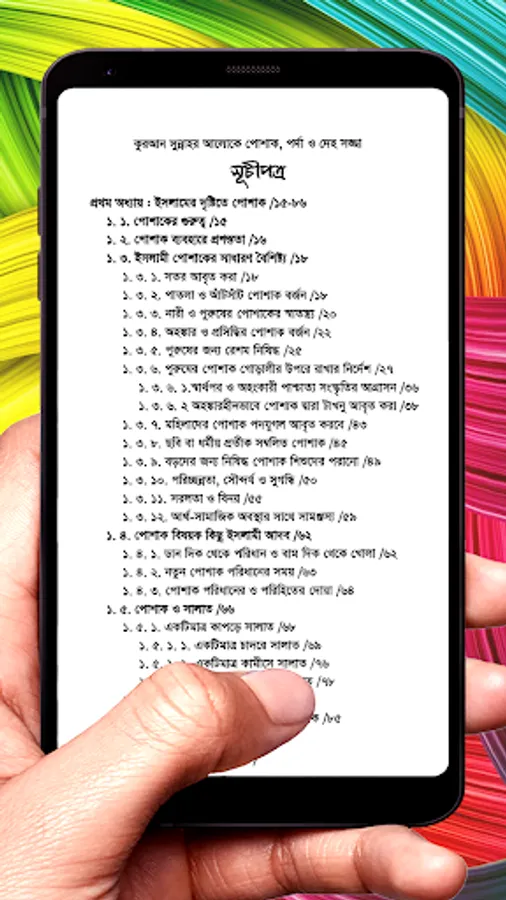 কুরআন সুন্নাহর আলোকে পোশাক, পর্দা ও দেহ সজ্জা
সূচীপত্র
প্রথম অধ্যায় : ইসলামের দৃষ্টিতে পোশাক /১৫-৮৬
১. ১. পোশাকের গুরুত্ব /১৫
১. ২. পোশাক ব্যবহারে প্রশস্ততা /১৬
১. ৩. ইসলামী পোশাকের সাধারণ বৈশিষ্ট্য /১৮
১. ৩. ১. সতর আবৃত করা /১৮
১. ৩. ২. পাতলা ও আঁটসাঁট পোশাক বর্জন /১৮
১. ৩. ৩. নারী ও পুরুষের পোশাকের স্বাতন্ত্র্য /২০
১. ৩. ৪. অহঙ্কার ও প্রসিদ্ধির পোশাক বর্জন /২২
১. ৩. ৫. পুরুষের জন্য রেশম নিষিদ্ধ /২৫
১. ৩. ৬. পুরুষের পোশাক গোড়ালীর উপরে রাখার নির্দেশ /২৭
১. ৩. ৬. ১.স্বার্থপর ও অহংকারী পাশ্চাত্য সংস্কৃতির আগ্রাসন /৩৬
১. ৩. ৬. ২ অহঙ্কারহীনভাবে পোশাক দ্বারা টাখনু আবৃত করা /৩৮
১. ৩. ৭. মহিলাদের পোশাক পদযুগল আবৃত করবে /৪৩
১. ৩. ৮. ছবি বা ধর্মীয় প্রতীক সম্বলিত পোশাক /৪৫
১. ৩. ৯. বড়দের জন্য নিষিদ্ধ পোশাক শিশুদের পরানো /৪৯
১. ৩. ১০. পরিচ্ছন্নতা, সৌন্দর্য ও সুগন্ধি /৫০
১. ৩. ১১. সরলতা ও বিনয় /৫৫
১. ৩. ১২. আর্থ-সামাজিক অবস্থার সাথে সামঞ্জস্য /৫৯
১. ৪. পোশাক বিষয়ক কিছু ইসলামী আদব /৬২
১. ৪. ১. ডান দিক থেকে পরিধান ও বাম দিক থেকে খোলা /৬২
১. ৪. ২. নতুন পোশাক পরিধানের সময় /৬৩
১. ৪. ৩. পোশাক পরিধানের ও পরিহিতের দোয়া /৬৪
১. ৫. পোশাক ও সালাত /৬৬
১. ৫. ১. একটিমাত্র কাপড়ে সালাত /৬৮
১. ৫. ১. ১. একটিমাত্র চাদরে সালাত /৬৯
১. ৫. একটিমাত্র কামীসে সালাত /৭৬
/৭৮
/৮৫